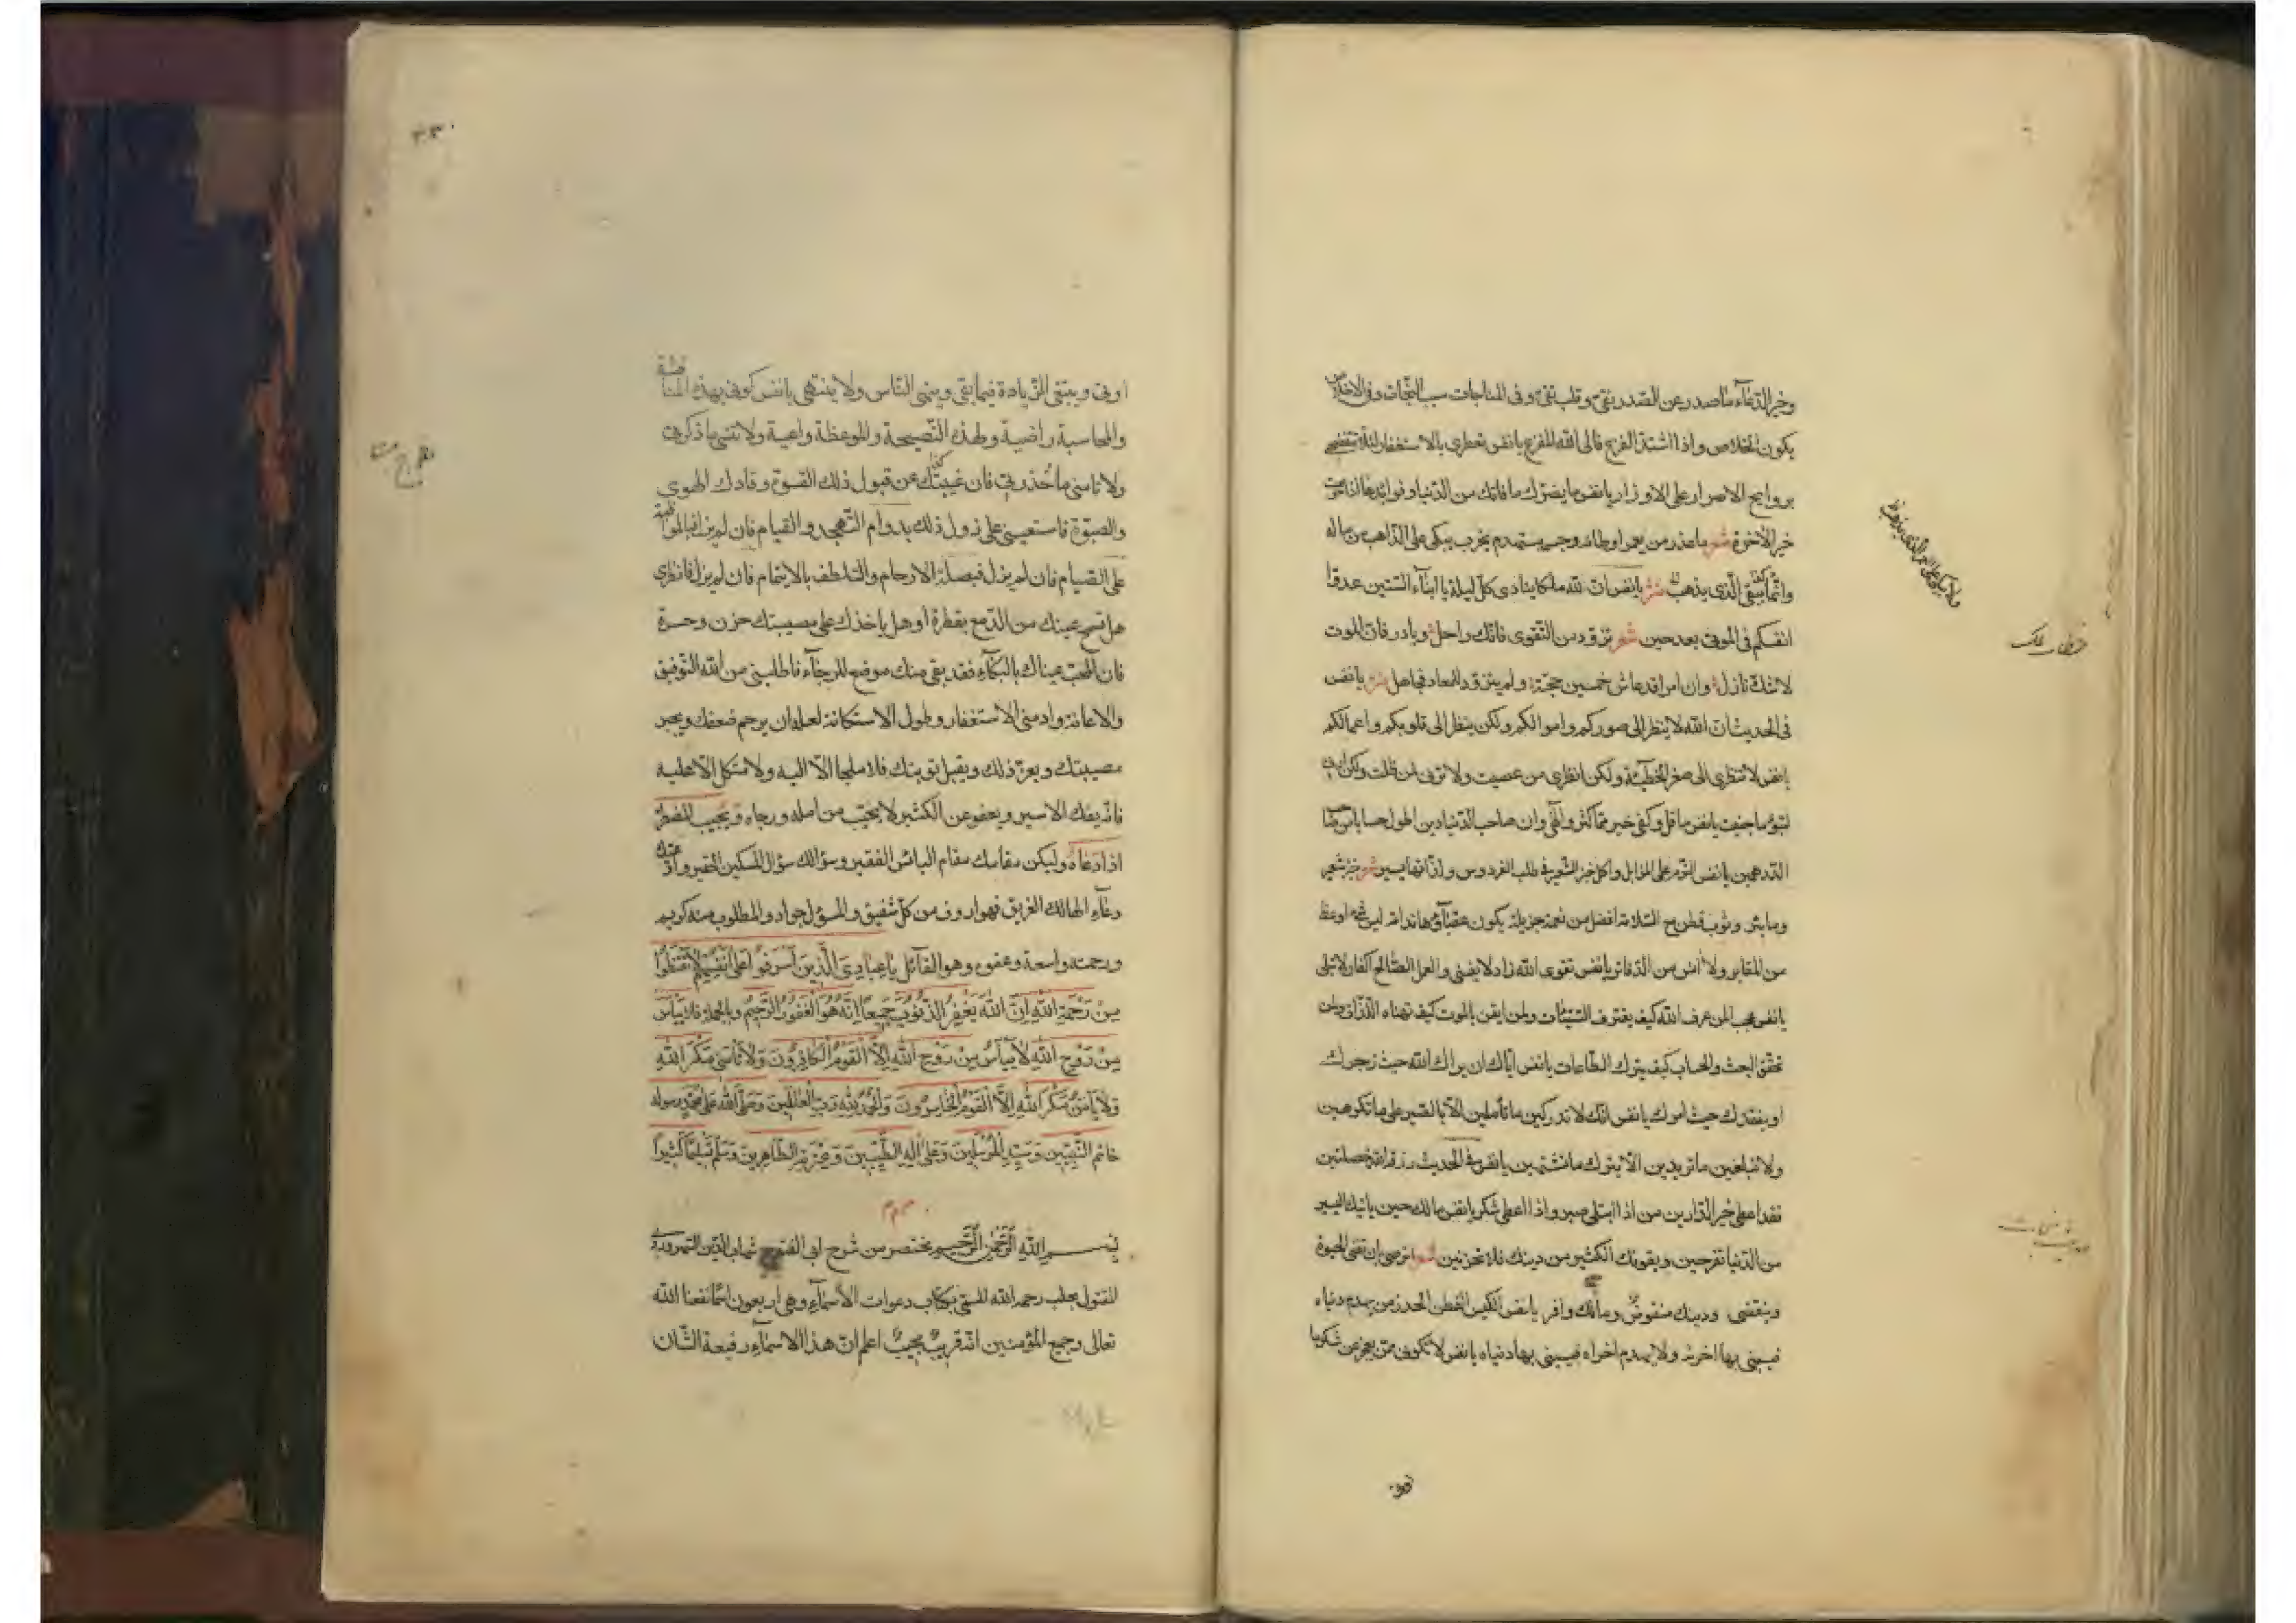 وخير الدعاء ما صدر عن الصدر نقيّ وقلب تقيّ وفى المناجات سبب النجات وفى الاخلاص
يكون الخلاص واذا اشتدّ الفزع فالى الله المفزع يا نفس تعطرى بالاستغفار لئلا تفضحك
بروايح الاصرار على الاوزار يا نفس ما يضرّك ما فاتك من الدنيا وفوائدها اذا
خير الآخرة شعر ما عذر من يعمر اوطانه وجسمه مستهدم يخرب يبكى على الذاهب من ماله
وانّما يبقى الّذى يذهب نثر يا نفس انّ لله ملكا ينادى كلّ ليلة يا ابناء الستين عدّوا
انفسكم فى الموتى بعد حين شعر تزوّد من التقوى فانّك راحل وبادر فانّ الموت
لا شكّ نازل وان امرا قد عاش خمسين حجّة ولم يتزوّد للمعاد فجاهل نثر يا نفس
فى الحديث انّ الله لا ينظر الى صوركم واموالكم ولكن ينظر الى قلوبكم واعمالكم
يا نفس لا تنظرى الى صغر الخطيئة ولكن انظرى من عصيت ولا ترقى لمن ظلمت ولكن
لسوء ما جنيت يا نفس ما قلّ وكفى خير ممّا كثر والهى وان صاحب الدنيا دين اطول حسابا من
الدرهمين يا نفس النوم على المزابل واكل خبز الشعير فى طلب الفردوس يسير شعر خبز شعير
وما بئر وثوب قطن مع السلامة افضل من نعمة جزيلة يكون عقباؤها ندامة ليس شىء اوعظ
من المقابر ولا انس من الدفاتر يا نفس تقوى الله زاد لا يفنى والعمل الصالح اكفان لا تبلى
يا نفس عجب لمن عرف الله كيف يقترف السيّئات ولمن ايقن بالموت كيف تهناه اللذات ولمن
تحقّق البعث والحساب كيف يترك الطاعات يا نفس ايّاك ان يراك الله حيث زجرك
او يفقدك حيث امرك يا نفس انّك لا تدركين ما تأملين الّا بالصبر على ما تكرهين
ولا تبلغين ما تريدين الّا بترك ما تشتهين يا نفس فى الحديث من رزقه الله خصلتين
فقد اعطى خير الدّارين من اذا ابتلى صبر واذا اعطى شكر يا نفس مالك حين ياتيك اليسير
من الدنيا تفرحين ويفوتك الكثير من دينك فلا تحزنين شعر اترضى ان تفنى الحيوة
وتنقضى ودينك منقوص ومالك وافر يا نفس الكيس الفطن الحذر من يهدم دنياه
فيبنى بها اخرته ولا يهدم اخراه فيبنى بها دنياه يا نفس لا تكونى ممّن يعجز عن شكر ما
اوتى ويبتغى الزيادة فيما بقى وينهى الناس ولا ينتهى يا نفس كونى بهذه المناقشة
والمحاسبة راضية ولهذه النصيحة والموعظة واعية ولا تنسى ما ذكرنى
ولا تامنى ما حذرتى فان غيبتك عن قبول ذلك القسوة وقادك الهوى
والصبوة فاستعينى على ذلك بدوام التهجّد والقيام فان لم يزل فبالمواظبة
على الصيام فان لم يزل فبصلة الارحام والتلطف بالايتام فان لم يزل فانظرى
هل تسمح عينك من الدمع بقطرة او هل ياخذك على مصيبتك حزن وحسرة
فان سمحت عيناك بالبكاء فقد بقى منك موضع للرجاء فاطلبى من الله التوفيق
والاعانة وادمنى الاستغفار وطول الاستكانة لعله ان يرحم ضعفك ويجبر
مصيبتك ويعزّ ذلك ويقبل توبتك فلا ملجا الّا اليه ولا متّكل الّا عليه
فانه يفك الاسير ويعفو عن الكثير لا يخيّب من امله ورجاه ويجيب المضطرّ
اذا دعاه وليكن مقامك مقام البائس الفقير وسؤالك سؤال المسكين الحقير
دعاء الهالك الغريق فهو ارؤف من كلّ شفيق والمسؤل جواد والمطلوب منه كريم
ورحمته واسعة وعفوه وهو القائل يا عبادى الّذين اسرفوا على انفسهم لا تقنطوا
من رحمة الله انّ الله يغفر الذنوب جميعا انّه هو الغفور الرحيم وبالجملة فلا ييأس
من روح الله لا ييأس من روح الله الّا القوم الكافرون ولا تأمنى مكر الله
ولا يأمن مكر الله الّا القوم الخاسرون والحمد لله رب العالمين وصلّى الله على محمد رسوله
خاتم النبيّين وسيد المرسلين وعلى آله الطيّبين وعترته الطاهرين وسلّم تسليما كثيرا
بسم الله الرحمن الرحيم مختصر من شرح ابى الفتوح شهاب الدين السهروردى
المقتول بحلب رحمه الله المسمّى بكتاب دعوات الاسماء وهى اربعون اسما نفعنا الله
تعالى وجميع المؤمنين انّه قريب مجيب اعلم انّ هذا الاسماء رفيعة الشان